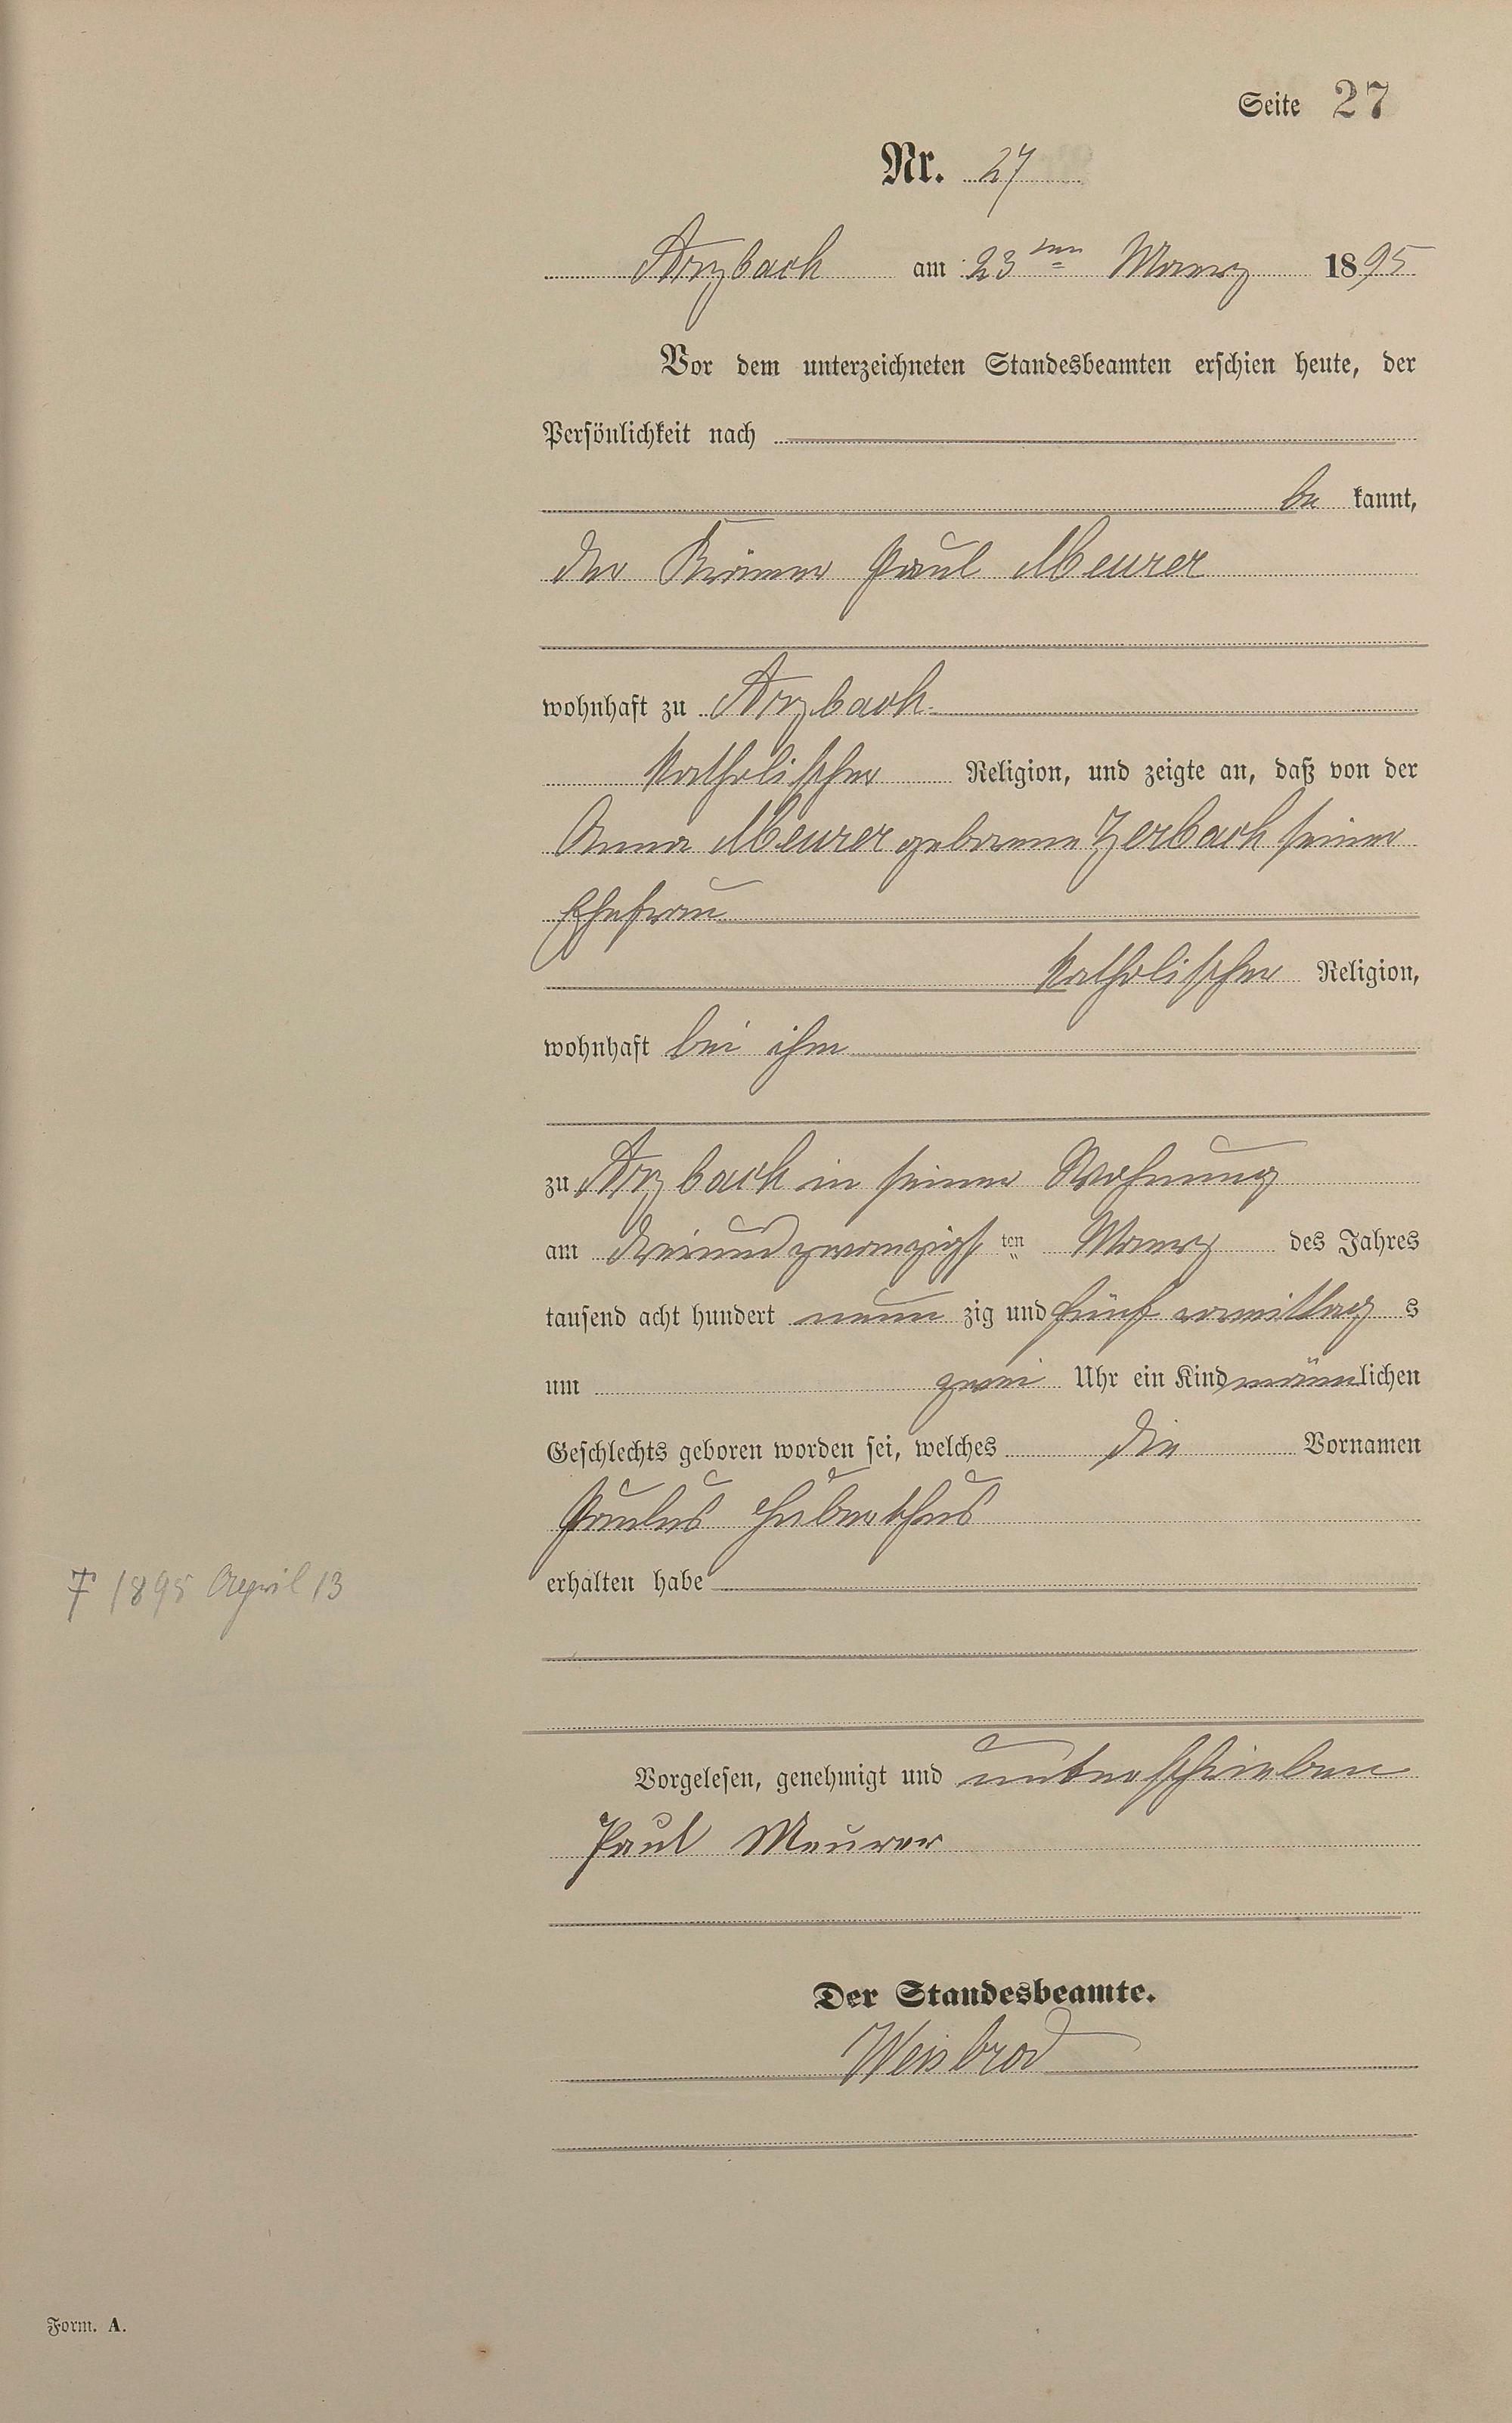 Seite 27
Nr. 27
Arzbach am 23ten Maerz 1895
Vor dem unterzeichneten Standesbeamten erschien heute, der
Persönlichkeit nach
be kannt,
der Krämer Paul Meurer
wohnhaft zu Arzbach
katholischer Religion, und zeigte an, daß von der
Anna Meurer geborene Zerbach seiner
Ehefrau
katholischer Religion,
wohnhaft bei ihm
zu Arzbach in seiner Wohnung
am dreiundzwanzigst ten Maerz des Jahres
tausend acht hundert neun zig und fünf vormittag s
um zwei Uhr ein Kind männlichen
Geschlechts geboren worden sei, welches die Vornamen
Paulus Huberthus
† 1895 April 13
erhalten habe
Vorgelesen, genehmigt und unterschrieben
Paul Meurer
Der Standesbeamte.
Weisbrod
Form. A.